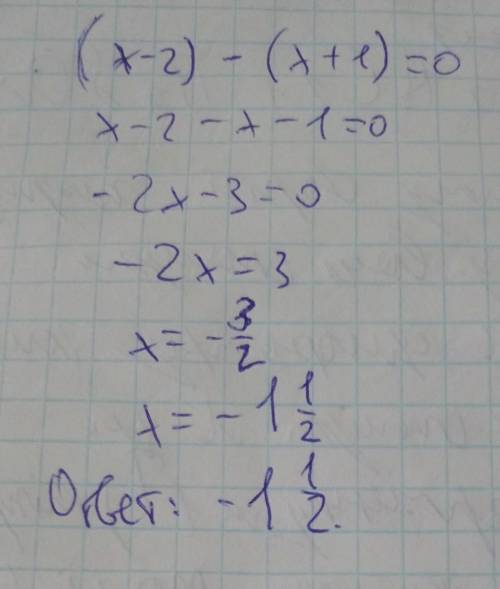 (x-2) - (x+1) = 0
x-2-x-1=0
-2x-3=0
-2x=3
x= -3/2
x= -1 1/2
Ответ: -1 1/2.